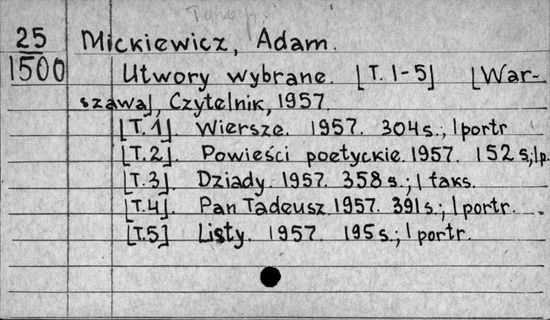 25 Mickiewicz, Adam.
1500 Utwory wybrane. [T. 1-5] [War-
szawa], Czytelnik, 1957.
[T.1]. Wiersze. 1957. 304 s., 1 portr
[T.2]. Powieści poetyckie. 1957. 152 s; 1 p.
[T.3]. Dziady. 1957. 358 s.; 1 taks.
[T.4]. Pan Tadeusz. 1957. 391 s.; 1 portr.
[T.5] Listy. 1957. 195 s.; 1 portr.